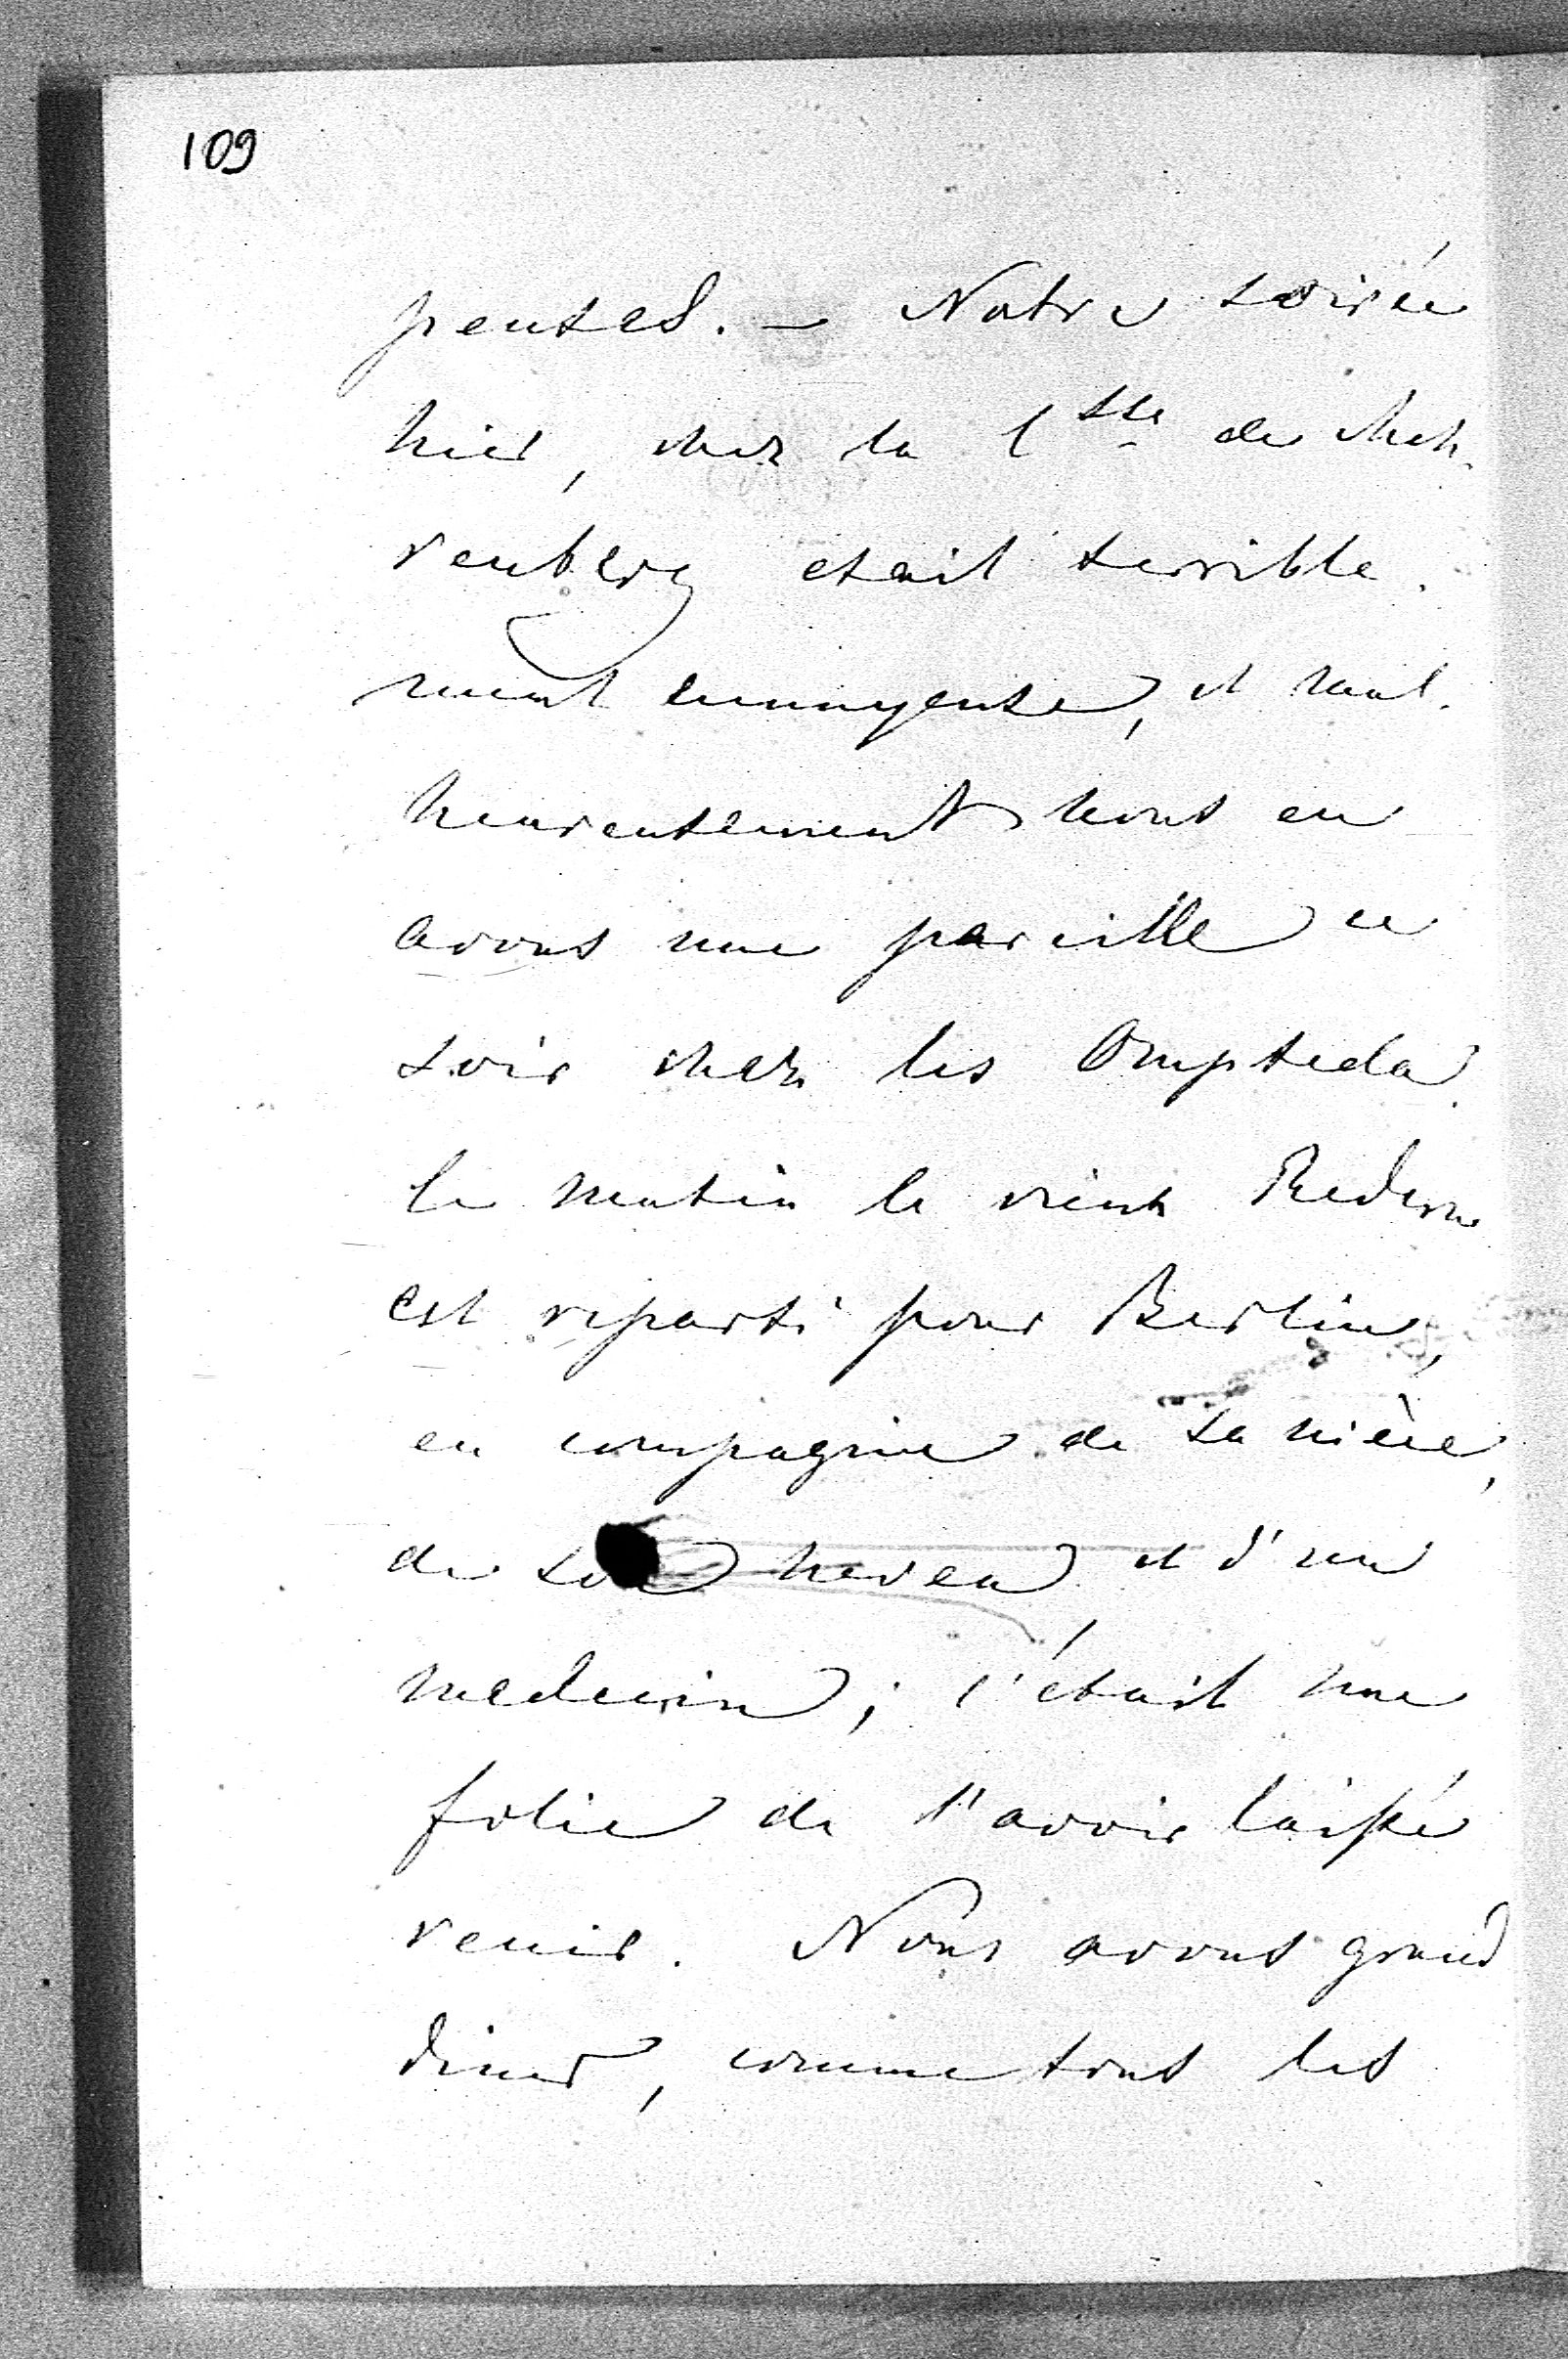 109
penses. – Notre soirée
hier, chez la Csse de Reh-
renberg etait terrible-
ment ennuyeuse, et mal-
heureusement nous en
avons une pareille ce
soir chez les Ompteda.
Ce matin le vieux Redern
est reparti pour Berlin,
en compagnie de sa nièce,
de son neveu et d'un
medecin; c'était une
folie de l'avoir laissé
venir. Nous avons grand
diner, comme tous les